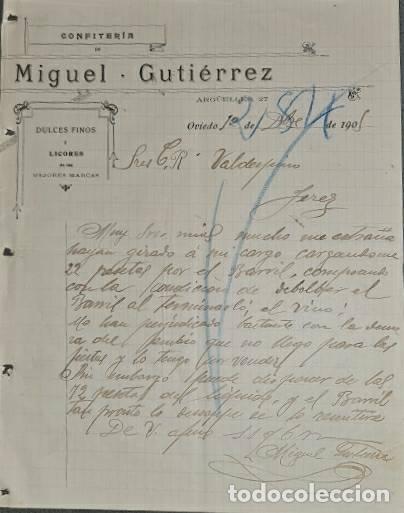 CONFITERÍA
DE
Miguel · Gutiérrez
ARGÜELLES, 27
Oviedo 1º de de 1905
DULCES FINOS
Y
LICORES
DE LAS
MEJORES MARCAS
Sres C. R. Valdespino
Jerez
Muy Sres mios mucho me extraña
hayan girado á mi cargo cargandome
22 pesetas por el Barril, comprando
con la condicion de debolber el
Barril al terminarlo, el vino;
Me han perjudicado bastante con la demo
ra del embio que no llego para las
fiestas y lo tengo por vender
Sin embargo puede disponer de las
72 pesetas del liquido, y el Barril
tan pronto lo desocupe se lo remitire
De V. afmo S S q b m
Miguel Gutierrez
todocoleccion.net